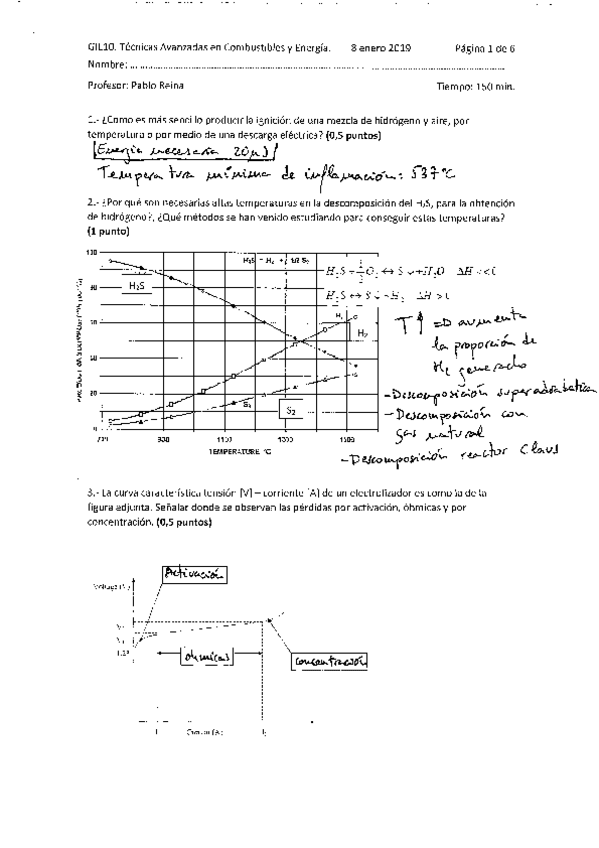 GIL10. Técnicas Avanzadas en Combustibles y Energía. 8 enero 2019 Página 1 de 6
Nombre:
Profesor: Pablo Reina Tiempo: 150 min.
1.- ¿Como es más sencillo producir la ignición de una mezcla de hidrógeno y aire, por
temperatura o por medio de una descarga eléctrica? (0,5 puntos)
Energía necesaria 20 μJ
Temperatura mínima de inflamación: 537 °C
2.- ¿Por qué son necesarias altas temperaturas en la descomposición del H₂S, para la obtención
de hidrógeno?, ¿Qué métodos se han venido estudiando para conseguir estas temperaturas?
(1 punto)
100
H₂S = H₂ + 1/2 S₂
H₂S
80
60
20
0
H₂
S₂
S₂
700 900 1100 1300 1500
TEMPERATURE °C
T↑ => aumenta
la proporción de
H₂ generado
- Descomposición superadiabática
- Descomposición con
gas natural
- Descomposición reactor Claus
3.- La curva característica tensión (V) – corriente (A) de un electrolizador es como la de la
figura adjunta. Señalar donde se observan las pérdidas por activación, óhmicas y por
concentración. (0,5 puntos)
Activación
óhmicas
concentración